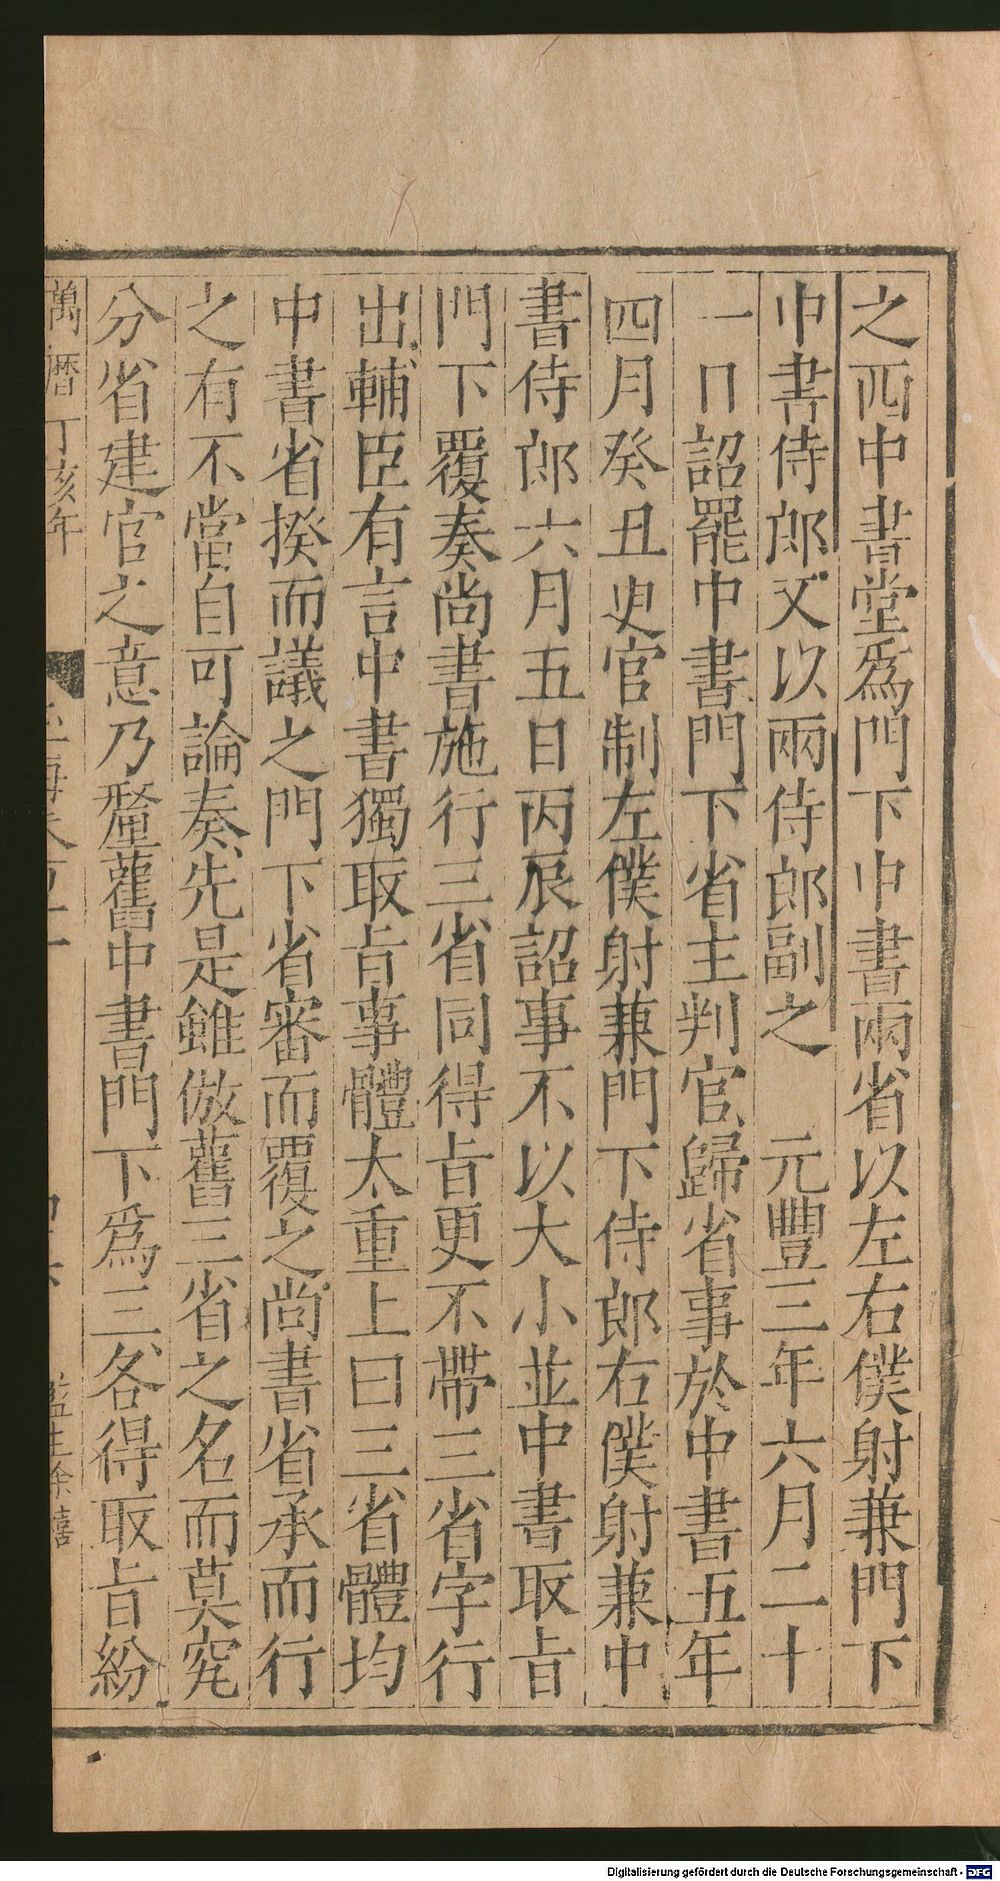 之西中書堂爲門下中書兩省以左右僕射兼門下
中書侍郎又以兩侍郎副之　元豐三年六月二十
一日詔罷中書門下省主判官歸省事於中書五年
四月癸丑更官制左僕射兼門下侍郎右僕射兼中
書侍郎六月五日丙辰詔事不以大小並中書取旨
門下覆奏尚書施行三省同得旨更不帶三省字行
出輔臣有言中書獨取旨事體太重上曰三省體均
中書省揆而議之門下省審而覆之尚書省承而行
之有不當自可論奏先是雖倣舊三省之名而莫究
分省建官之意乃釐舊中書門下爲三各得取旨紛
萬曆丁亥年
Digitalisierung gefördert durch die Deutsche Forschungsgemeinschaft - DFG